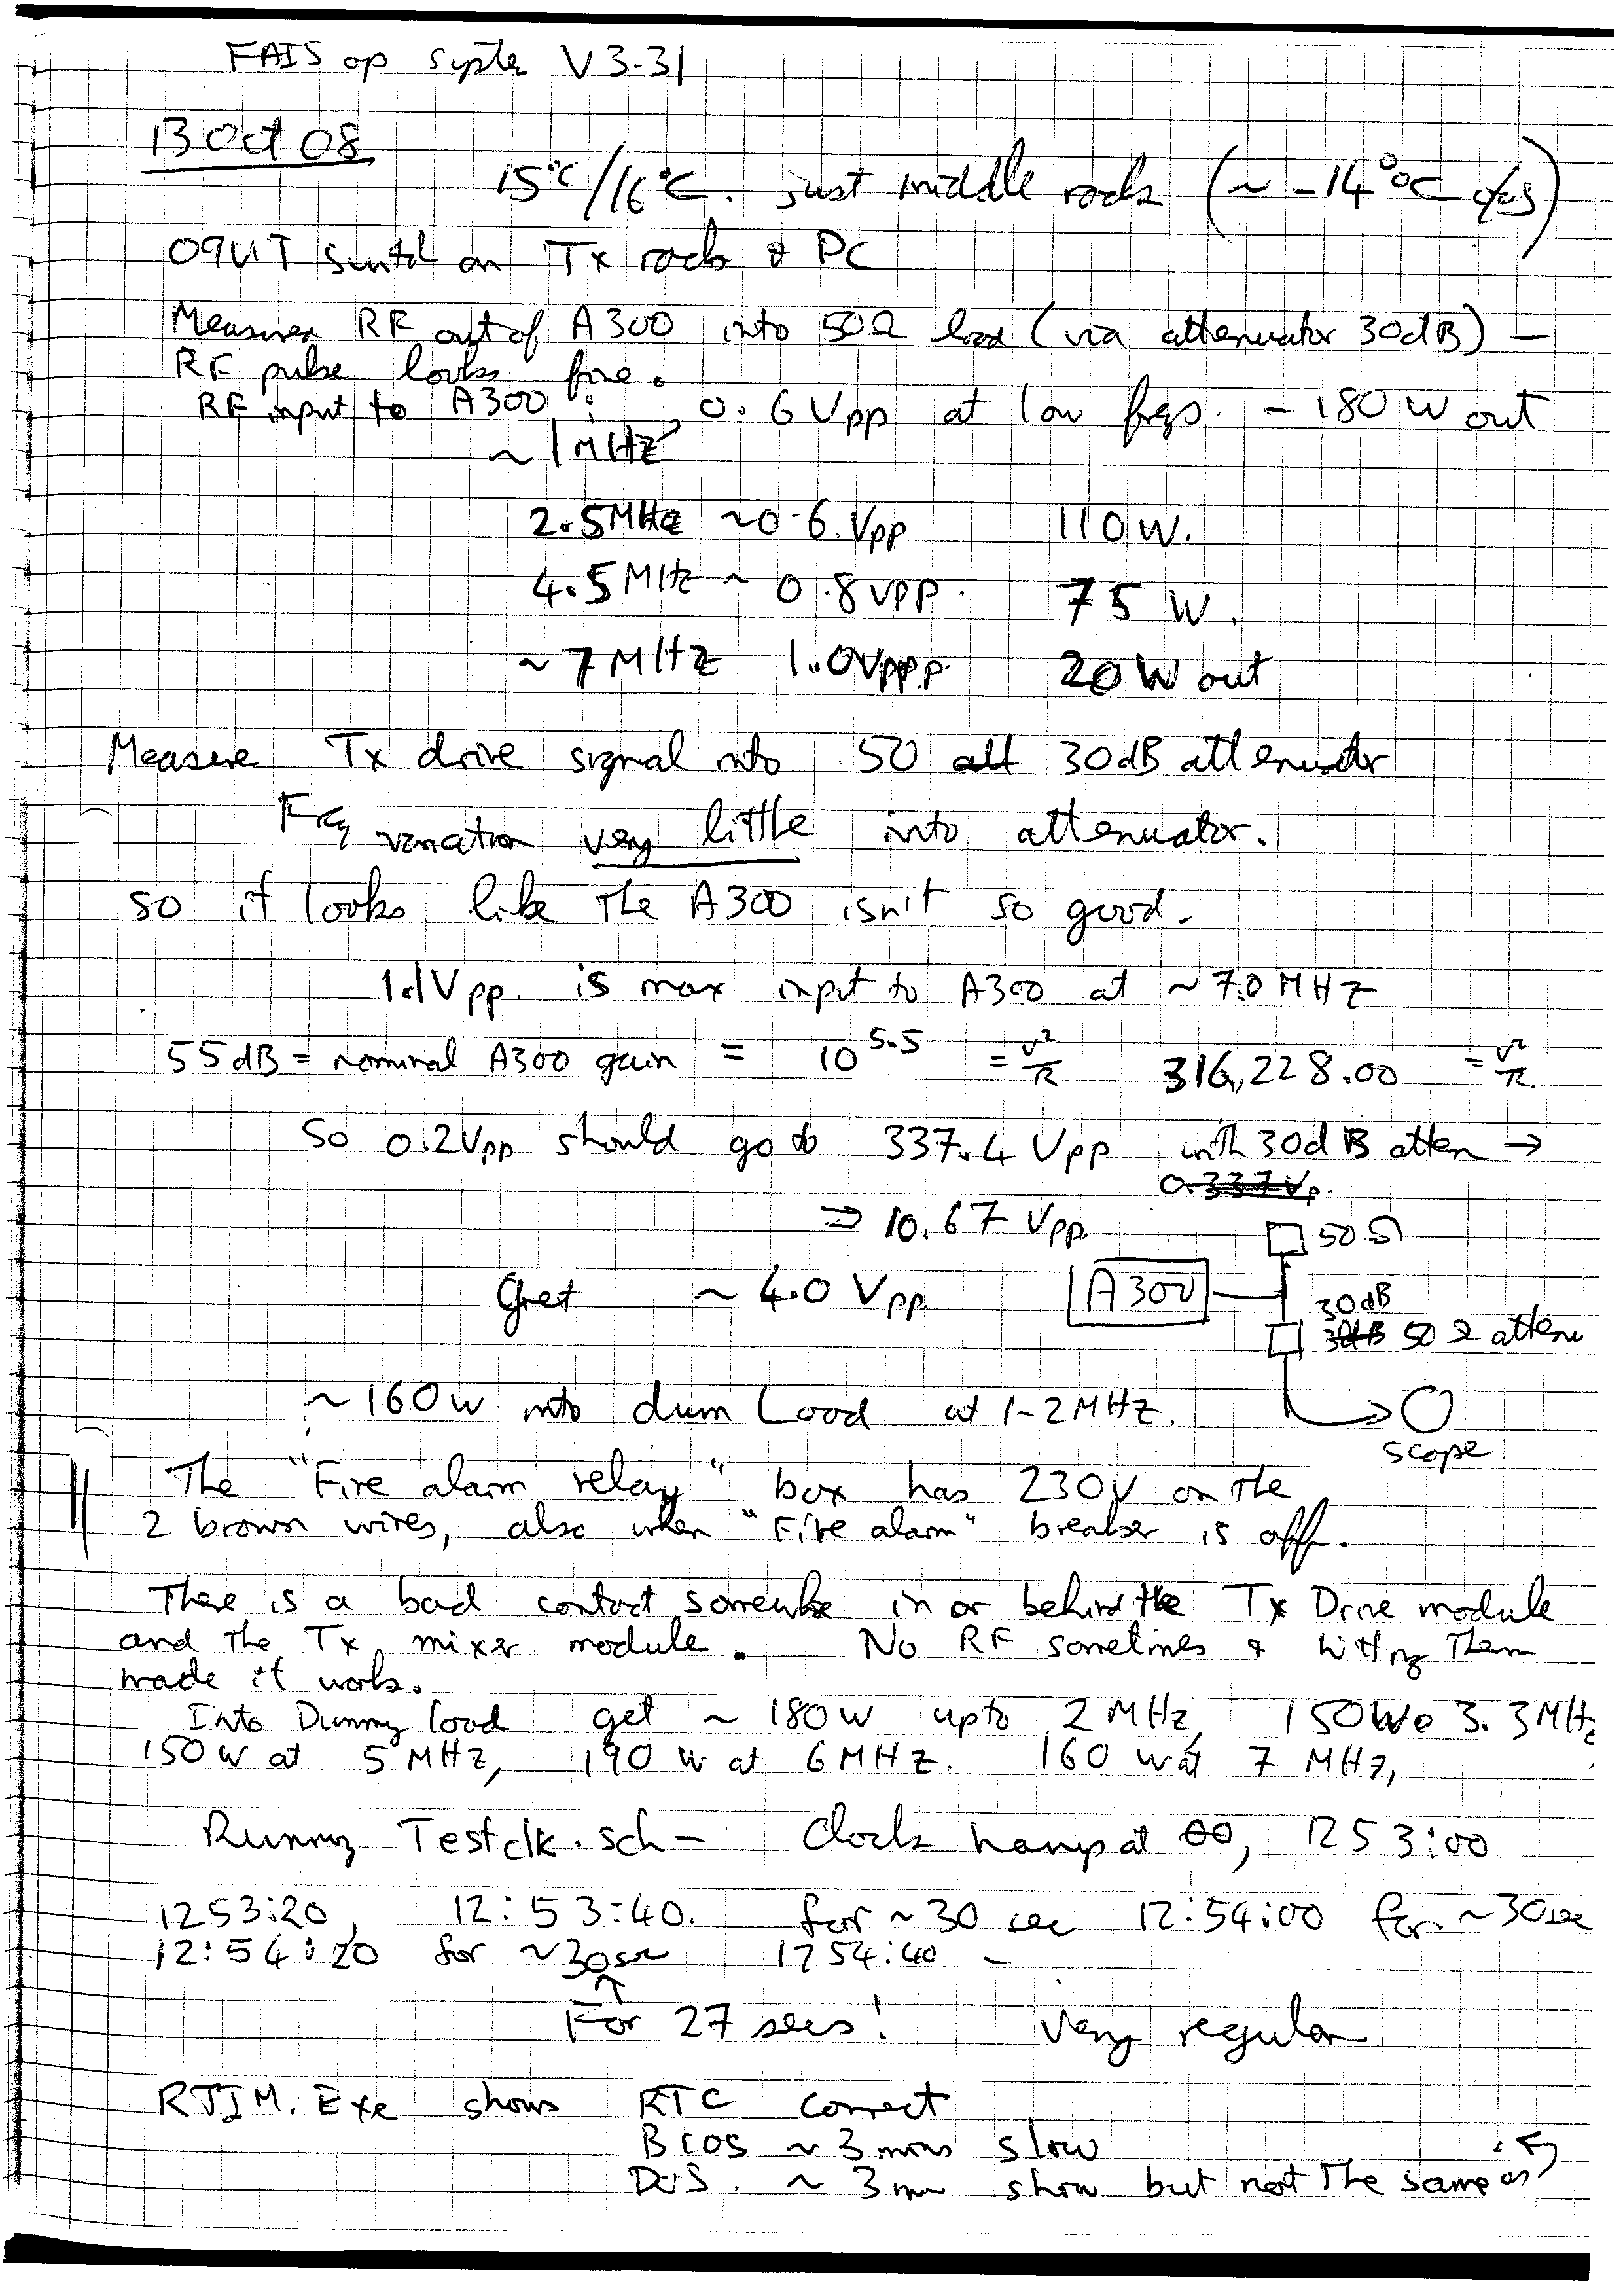 FAIS op V3-31
13 Oct 08
15°C/16°C. just middle rack (~ -14°C o/s)
09UT switched on Tx rack & PC
Measure RF out of A300 into 50Ω load (via attenuator 30dB) –
RF pulse looks fine.
RF input to A300 : 0.6Vpp at low freqs. – 180W out
~1MHz
2.5MHz ~0.6Vpp 110W.
4.5MHz ~ 0.8Vpp. 75W.
~7MHz 1.0Vpp. 20W out
Measure Tx drive signal into 50 30dB attenuator
Freq variation very little into attenuator.
so it looks like the A300 isn't so good.
1.1Vpp. is max input to A300 at ~7.0MHz
55dB = nominal A300 gain = 10^5.5 = v²/R 316,228.00 = v²/R.
So 0.2Vpp should go to 337.4Vpp with 30dB atten →
0.337Vp.
⇒ 10.67Vpp
50Ω
Get ~4.0Vpp
A300
30dB
30dB 50Ω atten
~160W into dum Load at 1-2MHz.
scope
The "Fire alarm relay" box has 230V on the
2 brown wires, also when "Fire alarm" breaker is off.
There is a bad contact somewhere in or behind the Tx Drive module
and the Tx mixer module. No RF sometimes & hitting them
made it work.
Into Dummy load get ~180W upto 2MHz, 150W@3.3MHz
150W at 5MHz, 190W at 6MHz. 160W at 7MHz,
Running Testclk.sch – Clock hangs at 00, 1253:00
1253:20, 12:53:40. for ~30 sec 12:54:00 for ~30sec
12:54:20 for ~30sec 1254:40 –
↑
For 27 secs! Very regular
RTIM.Exe shows RTC correct
BIOS ~3mins slow
DOS. ~3min slow but not the same as